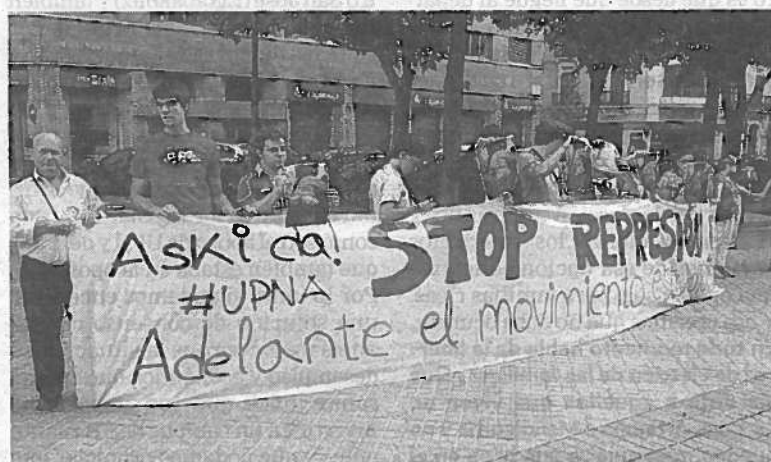 Aski da!
STOP REPRESION
#UPNA
Adelante el movimiento